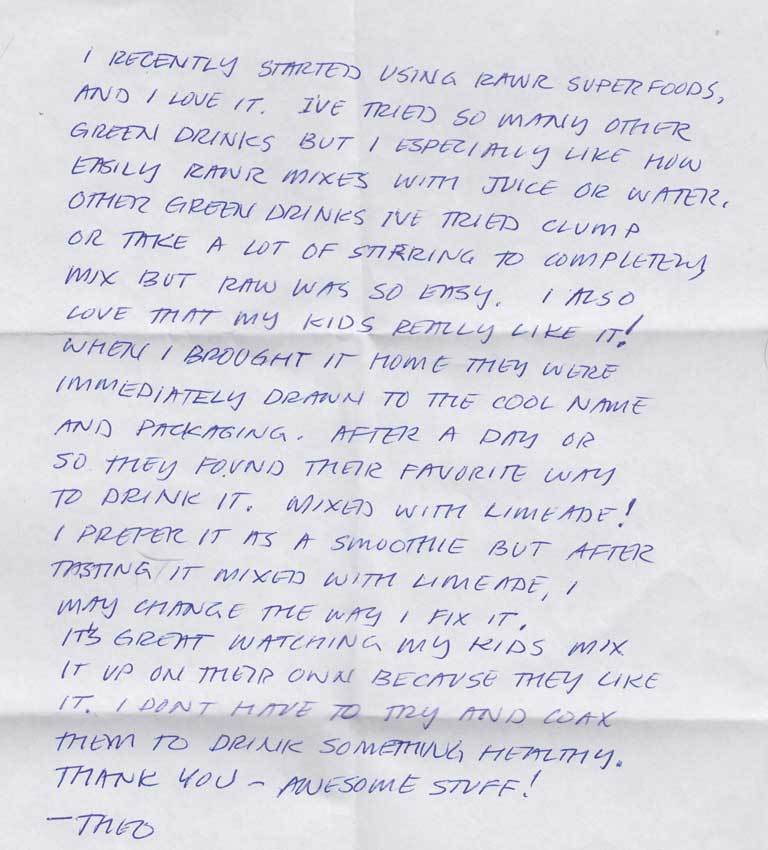 I RECENTLY STARTED USING RAWR SUPERFOODS,
AND I LOVE IT. I'VE TRIED SO MANY OTHER
GREEN DRINKS BUT I ESPECIALLY LIKE HOW
EASILY RAWR MIXES WITH JUICE OR WATER.
OTHER GREEN DRINKS I'VE TRIED CLUMP
OR TAKE A LOT OF STIRRING TO COMPLETELY
MIX BUT RAW WAS SO EASY. I ALSO
LOVE THAT MY KIDS REALLY LIKE IT!
WHEN I BROUGHT IT HOME THEY WERE
IMMEDIATELY DRAWN TO THE COOL NAME
AND PACKAGING. AFTER A DAY OR
SO THEY FOUND THEIR FAVORITE WAY
TO DRINK IT. MIXED WITH LIMEADE!
I PREFER IT AS A SMOOTHIE BUT AFTER
TASTING IT MIXED WITH LIMEADE, I
MAY CHANGE THE WAY I FIX IT.
IT'S GREAT WATCHING MY KIDS MIX
IT UP ON THEIR OWN BECAUSE THEY LIKE
IT. I DON'T HAVE TO TRY AND COAX
THEM TO DRINK SOMETHING HEALTHY.
THANK YOU – AWESOME STUFF!
– THEO